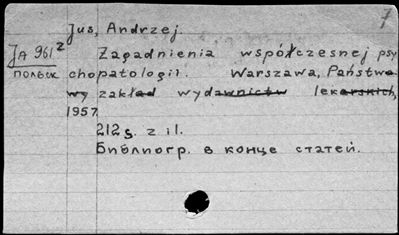 7
Jus, Andrzej.
JA 961²
польск
Zagadnienia współczesnej psy
chopatologii. Warszawa, Państwo
wy zakład wydawnictw lekarskich,
1957.
212 s. z il.
Библиогр. в конце статей.